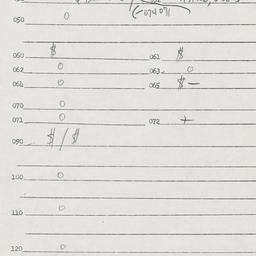 050 0
060 $ 061 $
062 0 063 0
064 0 065 $ -
070 0
071 0 072 +
090 $ / $
100 0
110 0
120 0